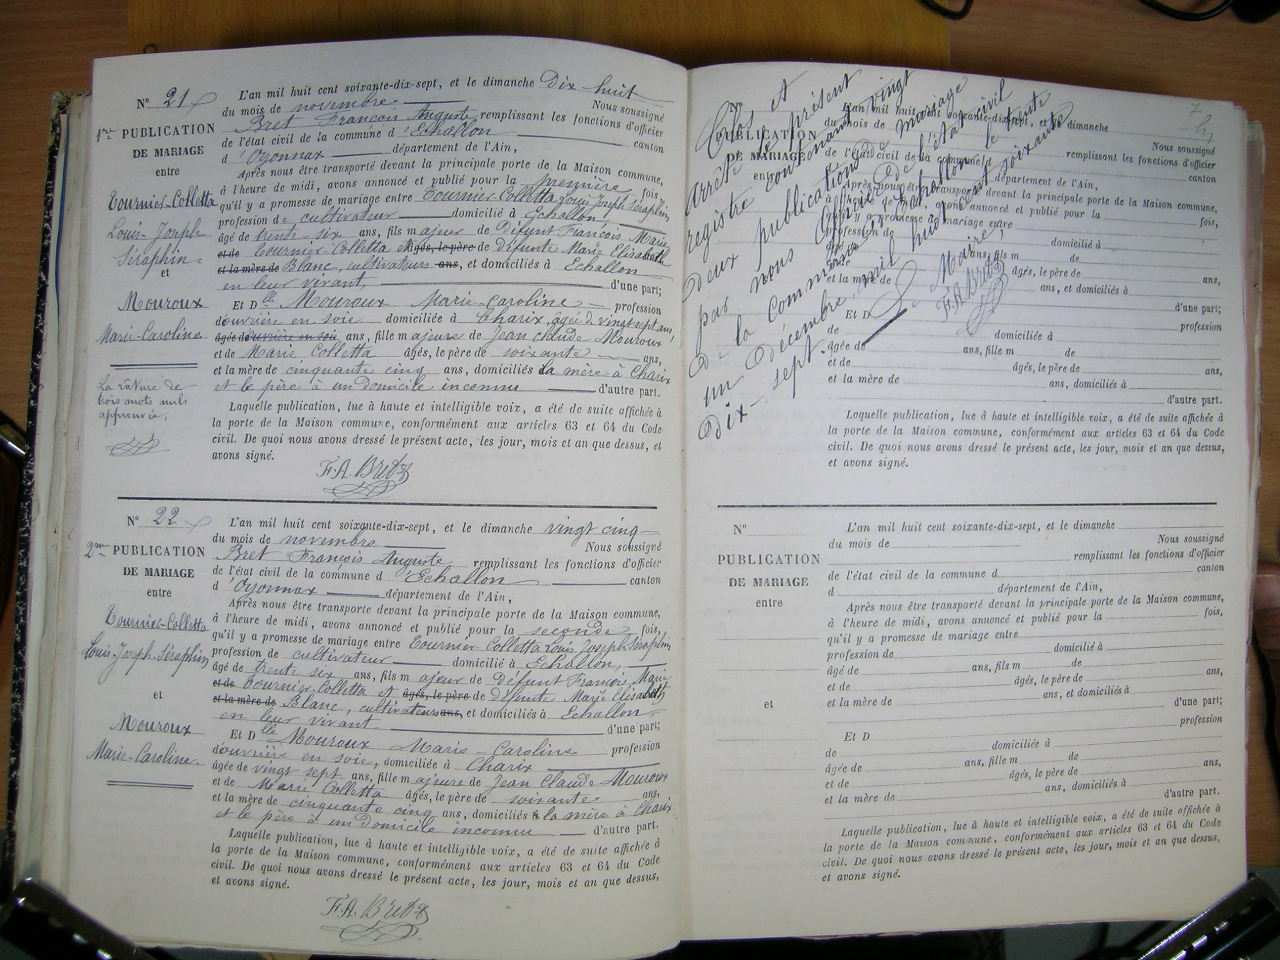 N° 21
1re PUBLICATION
DE MARIAGE
entre
Tournier-Colletta
Louis-Joseph
Séraphin
et
Mouroux
Marie-Caroline
La rature de
trois mots nuls
approuvée.
L'an mil huit cent soixante-dix-sept, et le dimanche Dix huit
du mois de novembre Nous soussigné
Bret François Auguste, remplissant les fonctions d'officier
de l'état civil de la commune d'Echallon canton
d'Oyonnax département de l'Ain,
Après nous être transporté devant la principale porte de la Maison commune,
à l'heure de midi, avons annoncé et publié pour la première fois,
qu'il y a promesse de mariage entre Tournier Colletta Louis Joseph Séraphin
profession de cultivateur domicilié à Echallon
âgé de trente six ans, fils majeur de Défunt François-Marie
et de Tournier Colletta et âgés, le père de Défunte Marie Elisabeth
et la mère de Blanc, cultivateurs ans, et domiciliés à Echallon
en leur vivant, d'une part;
Et Dlle Mouroux Marie-Caroline profession
d'ouvrière en soie domiciliée à Charix, âgée de vingt sept ans,
âgée d'ouvrière en soie ans, fille majeure de Jean Claude Mouroux
et de Marie Colletta âgés, le père de soixante ans,
et la mère de cinquante cinq ans, domiciliés la mère à Charix
et le père à un domicile inconnu d'autre part.
Laquelle publication, lue à haute et intelligible voix, a été de suite affichée à
la porte de la Maison commune, conformément aux articles 63 et 64 du Code
civil. De quoi nous avons dressé le présent acte, les jour, mois et an que dessus, et
avons signé.
F. A. Bret
N° 22
2me PUBLICATION
DE MARIAGE
entre
Tournier-Colletta
Louis-Joseph-Séraphin
et
Mouroux
Marie-Caroline
L'an mil huit cent soixante-dix-sept, et le dimanche vingt cinq
du mois de novembre Nous soussigné
Bret François Auguste remplissant les fonctions d'officier
de l'état civil de la commune d'Echallon canton
d'Oyonnax département de l'Ain,
Après nous être transporté devant la principale porte de la Maison commune,
à l'heure de midi, avons annoncé et publié pour la seconde fois,
qu'il y a promesse de mariage entre Tournier Colletta Louis Joseph Séraphin
profession de cultivateur domicilié à Echallon,
âgé de trente six ans, fils majeur de Défunt François Marie
et de Tournier-Colletta et âgés, le père de défunte Marie Elisabeth
et la mère de Blanc, cultivateurs ans, et domiciliés à Echallon
en leur vivant d'une part;
Et Dlle Mouroux Marie-Caroline profession
d'ouvrière en soie, domiciliée à Charix
âgée de vingt sept ans, fille majeure de Jean Claude Mouroux
et de Marie Colletta âgés, le père de soixante ans,
et la mère de cinquante cinq ans, domiciliés à la mère à Charix
et le père à un domicile inconnu d'autre part.
Laquelle publication, lue à haute et intelligible voix, a été de suite affichée à
la porte de la Maison commune, conformément aux articles 63 et 64 du Code
civil. De quoi nous avons dressé le présent acte, les jour, mois et an que dessus,
et avons signé.
F. A. Bret
7
Clos et
Arrêté le présent
registre contenant vingt
deux publications de mariage
par nous officier de l'état civil
de la commune d'Echallon le trente
un Décembre mil huit cent soixante
Dix-sept.
Le Maire,
F. A. Bret
N°
PUBLICATION
DE MARIAGE
entre
L'an mil huit cent soixante-dix-sept, et le dimanche
du mois de Nous soussigné
remplissant les fonctions d'officier
de l'état civil de la commune d canton
d département de l'Ain,
Après nous être transporté devant la principale porte de la Maison commune,
à l'heure de midi, avons annoncé et publié pour la fois,
qu'il y a promesse de mariage entre
profession de domicilié à
âgé de ans, fils m de
et de âgés, le père de ans,
et la mère de ans, et domiciliés à
d'une part;
Et D profession
de domiciliée à
âgée de ans, fille m de
et de âgés, le père de ans,
et la mère de ans, domiciliés à
d'autre part.
Laquelle publication, lue à haute et intelligible voix, a été de suite affichée à
la porte de la Maison commune, conformément aux articles 63 et 64 du Code
civil. De quoi nous avons dressé le présent acte, les jour, mois et an que dessus,
et avons signé.
N°
PUBLICATION
DE MARIAGE
entre
et
L'an mil huit cent soixante-dix-sept, et le dimanche
du mois de Nous soussigné
remplissant les fonctions d'officier
de l'état civil de la commune d canton
d département de l'Ain,
Après nous être transporté devant la principale porte de la Maison commune,
à l'heure de midi, avons annoncé et publié pour la fois,
qu'il y a promesse de mariage entre
profession de domicilié à
âgé de ans, fils m de
et de âgés, le père de ans,
et la mère de ans, et domiciliés à
d'une part;
Et D profession
de domiciliée à
âgée de ans, fille m de
et de âgés, le père de ans,
et la mère de ans, domiciliés à
d'autre part.
Laquelle publication, lue à haute et intelligible voix, a été de suite affichée à
la porte de la Maison commune, conformément aux articles 63 et 64 du Code
civil. De quoi nous avons dressé le présent acte, les jour, mois et an que dessus,
et avons signé.